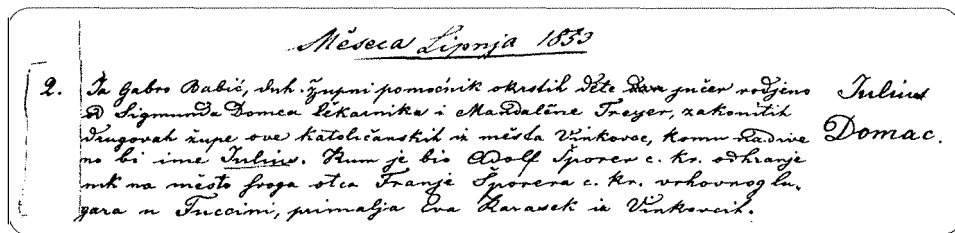 Měseca Lipnja 1853
2. Ja Gabro Babić, duh. župni pomoćnik okrstih děte jučer rodjeno Julius
od Sigmunda Domca lěkarnika i Mandalěne Freyer, zakonitih
drugovah župe ove katoličanskih iz města Vinkovce, komu nadive Domac.
no bi ime Julius. Kum je bio Adolf Šporer c. kr. odhranje
nik na město svoga otca Franje Šporera c. kr. vrhovnog lu,
gara u Fuccini, primalja Eva Karasek iz Vinkovcih.